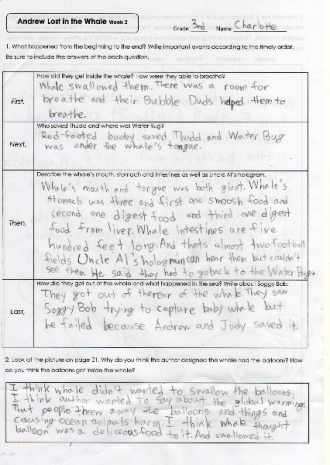 Andrew Lost in the Whale Week 2
Grade 3rd Name Charlotte
1. What happened from the beginning to the end? Write important events according to the timely order.
Be sure to include the answers of the each question.
How did they get inside the whale? How were they able to breathe?
First,
Whale swallowed them. There was a room for
breathe and their Bubble Duds helped them to
breathe.
Who saved Thudd and where was Water Bug?
Next,
Red-footed booby saved Thudd and Water Bug
was under the whale's tongue.
Describe the whale's mouth, stomach and intestines as well as Uncle Al's hologram.
Then,
Whale's mouth and tongue was both giant. Whale's
stomach was three and first one smoosh food and
second one digest food and third one digest
food from liver. Whale intestines are five
hundred feet long. And thats almost two football
fields. Uncle Al's hologram can hear them but couldn't
see them. He said they had to go back to the Water Bug.
How did they get out of the whale and what happened in the sea? Write about Soggy Bob.
Last,
They got out of the rear of the whale. They saw
Soggy Bob trying to capture baby whale but
he failed because Andrew and Judy saved it.
2. Look at the picture on page 21. Why do you think the author designed the whale had the balloons? How
do you think the balloons got inside the whale?
I think whale didn't wanted to swallow the balloons.
I think author wanted to say about the global warming.
That people threw away the balloons and things and
causing ocean animals harm. I think whale thought
balloon was a deliceous food to it. And swallowed it.